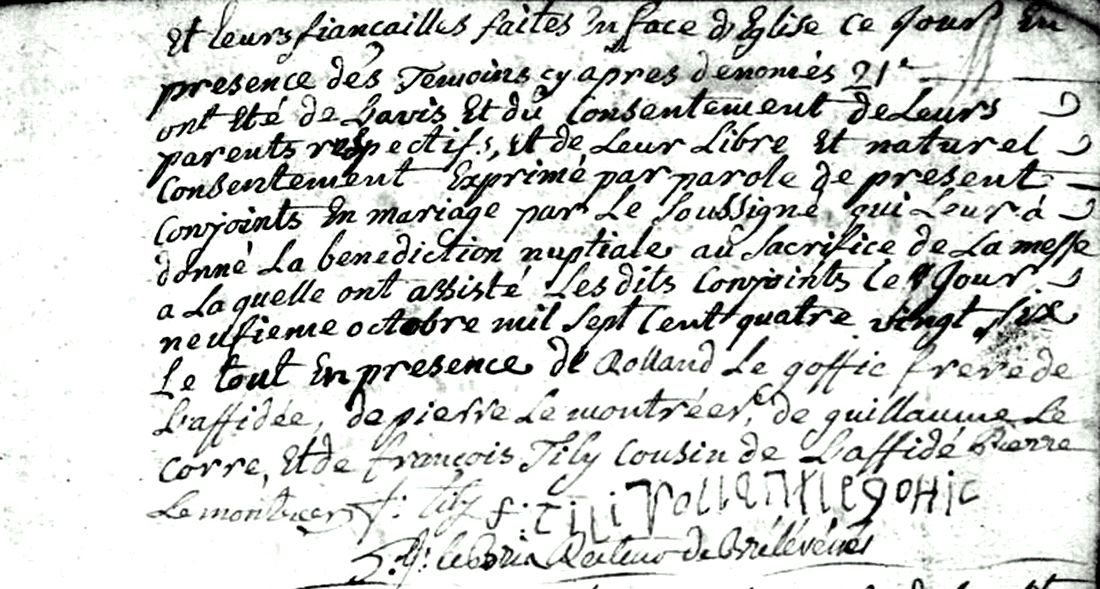 Et leurs fiancailles faites En face d'Eglise ce jour En
presence des Temoins cy apres denomés 21e
ont Eté de L'avis Et du Consentement de Leurs
parents respectifs, Et de Leur Libre Et naturel
Consentement Exprimé par parole de present
Conjoints En mariage par Le Soussigné qui Leur à
donné La benediction nuptiale au Sacrifice de La messe
a La quelle ont assisté Les dits Conjoints Ce Jour
neufieme octobre mil Sept Cent quatre vingt Six
Le tout En presence de Rolland Le goffic frere de
L'affidée, de pierre Le montréer, de guillaume Le
Corre, Et de françois Tily Cousin de L'affidé Pierre
Le montreer f: Tily f: Tili Rollan le goffic
Recteur de Brélévénés